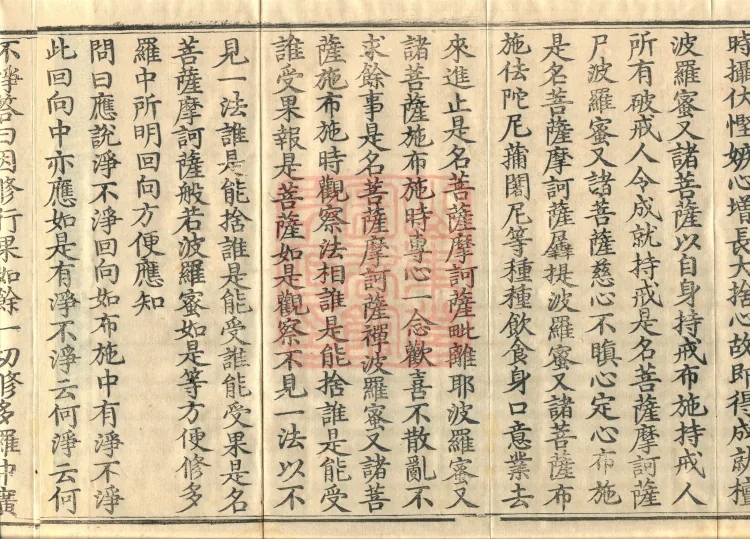 時攝伏慳嫉心增長大捨心故即得成就檀
波羅蜜又諸菩薩以自身持戒布施持戒人
所有破戒人令成就持戒是名菩薩摩訶薩
尸波羅蜜又諸菩薩慈心不瞋心定心布施
是名菩薩摩訶薩羼提波羅蜜又諸菩薩布
施佉陀尼蒲闍尼等種種飲食身口意業去
來進止是名菩薩摩訶薩毗離耶波羅蜜又
諸菩薩施布施時專心一念歡喜不散亂不
求餘事是名菩薩摩訶薩禪波羅蜜又諸菩
薩施布施時觀察法相誰是能捨誰是能受
誰受果報是菩薩如是觀察不見一法以不
見一法誰是能捨誰是能受誰能受果是名
菩薩摩訶薩般若波羅蜜如是等方便修多
羅中所明回向方便應知
問曰應說淨不淨回向如布施中有淨不淨
此回向中亦應如是有淨不淨云何淨云何
不淨答曰因修行果如餘一切修多羅中廣